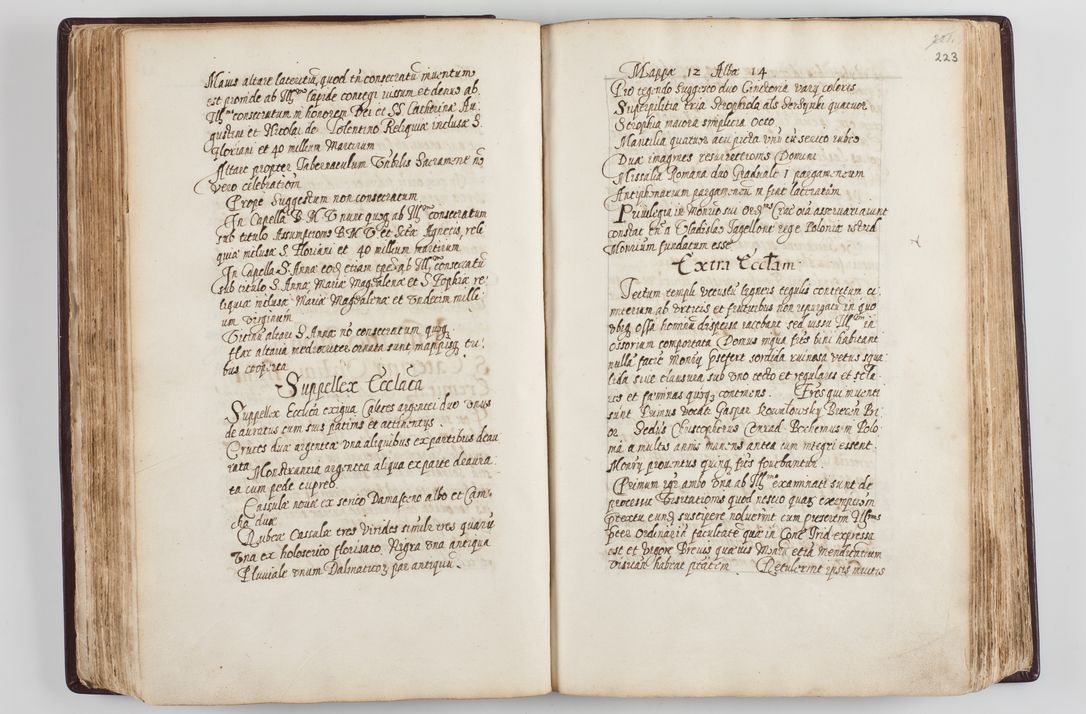 Maius altare lateritiũ, quod tñ consecratũ inventum
est proinde ab Illmo lapide contegi iussum et denuo ab
Illmo consecratum in honorem Dei et SS Catherinæ Au-
gustini et Nicolai de Tolentino Reliquiæ inclusæ S.
Floriani et 40 millium Martirum
Altare propter Tabernaculum Sacramenti nõ
vero celebrationi
Prope Suggestum non consecratum
In Capella B M V nunc quoq ab Illmo consecratum
sub titulo Assumptionis B M V et Sctæ Agnetis, reli
quiæ inclusæ S Floriani et 40 millium Martirum
In Capella S Annæ etiam ab Illmo consecratũ
sub titulo S Annæ Mariæ Magdalenæ et S Zophiæ re-
liquiæ inclusæ Mariæ Magdalenæ et Undecim milli-
um virginum
altari S Annæ nõ consecratum quoq
Hæc altaria mediocriter ornata sunt mappisq tri
bus cooperta
Suppellex Ecclĩca
Suppellex Ecclĩca exigua Calices argentei duo unus
de auratus cum suis patinis et attinentys
Cruces duæ argenteæ una aliquibus ex partibus deau
rata Monstrantia argentea aliqua ex parte deaura
ta cum pede cupreo
Cassulæ novæ ex serico Damasceno albo et Cam
cha duæ
Rubeæ Cassulæ tres Virides simulr tres quarũ
una ex holoserico florisato, Nigra una antiqua
Pluviale unum Dalmaticoꝝ par antiquũ
223
Mappæ 12 Albæ 14
Pro tegendo Suggesto duo Cinctoria vary coloris
Superpilitia tria Strophiola als Serzynki quatuor
Strophia maiora simplicia octo
Mantilia quatuor acu picta unũ cũ serico rubro
Duæ imagines resurrectionis Domini
Missalia Romana duo Graduale 1 pargameneum
Antiphonarium pargameneũ in fine laceratum
Privilegia in Monrio sui Ordis Crac oĩa asservari aiunt
constat tñ a Vladislao Jagellone rege Poloniæ istud
Monrium fundatum esse
Extra Ecclam
Tectum templi vetustũ ligneis tegulis contectum cæ
miterium ab urticis et fruticibus non repurgatũ in quo
ubiq ossa hominũ dispersa iacebant sed iussu Illmi in
ossorium comportata Domus in qua frs bini habitant
nulla faciẽ Monry præfert sordida ruinosa vetus squa
lida sine clausura sub uno tecto et regulares et secla
res et fæminas quoq continens. Fres qui inventi
sunt Primus vocat Gaspar Kowalowsky Brecen Pri
or Sedis Christopherus Conrad Bochemus in Polo
nia a multis annis manens antea cum integri essent
Monry proventus quinq frs fovebantur.
Primum igr ambo una ab Illmo examinati sunt de
processu Visitationis quod nescio quaꝝ exemptionũ
prætextu eunđ suscipere noluerint cum præsertim Illmus
præter Ordinariã facultatẽ quæ in Conc Trid expressa
est et vigore Brevis quævis Monria etiã Mendicantium
visitandi habeat ptatem Retulerint ipsis invitis